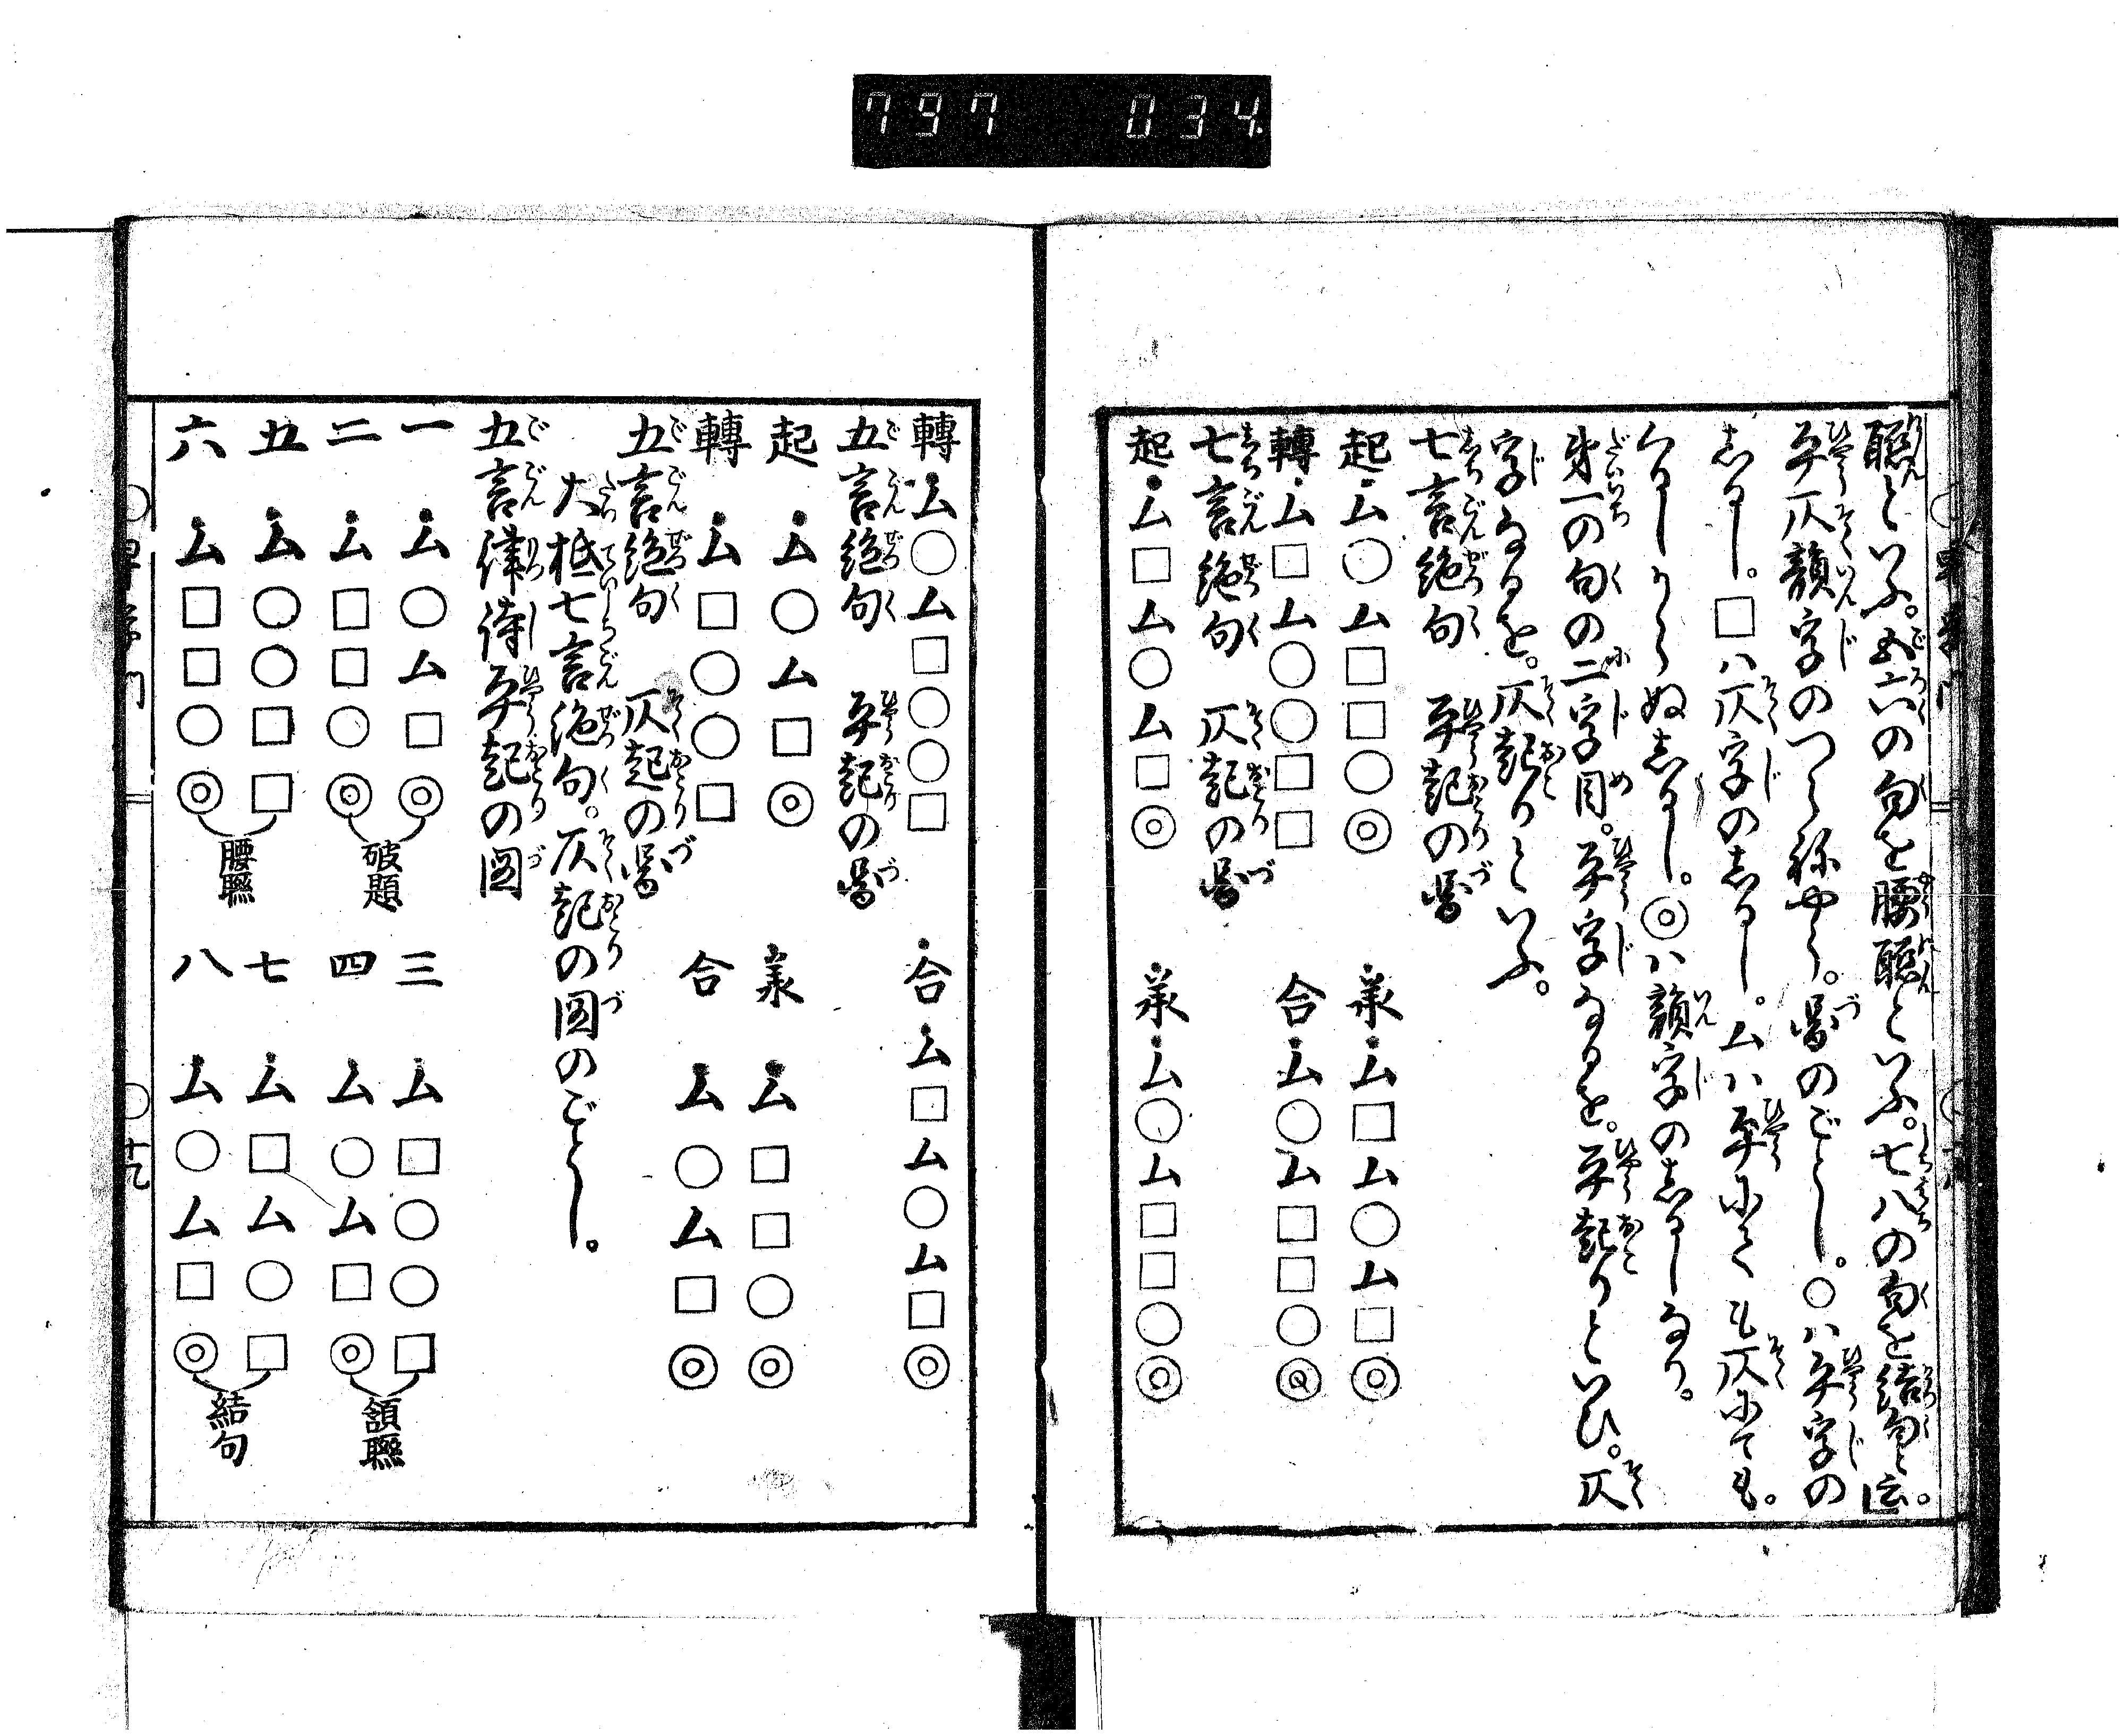 797 034
聯といふ。五六の句を腰聯といふ。七八の句を結句と云。
平仄韻字のつらねやう。啚のごとし。○ハ平字の
しるし。□ハ仄字のしるし。ムハ平にても仄にても。
くるしからぬしるし。◎ハ韻字のしるしなり。
第一の句の二字目。平字なるを。平起りといひ。仄
字なるを。仄起りといふ。
七言絶句 平起の啚
起 ム○ム□□○◎ 承 ム□ム○ム□◎
轉 ム□ム○○□□ 合 ム○ム□□○◎
七言絶句 仄起の啚
起 ム□ム○ム□◎ 承 ム○ム□□○◎
轉 ム○ム□○○□ 合 ム□ム○ム□◎
五言絶句 平起の啚
起 ム○ム□◎ 承 ム□□○◎
轉 ム□○○□ 合 ム○ム□◎
五言絶句 仄起の啚
大抵七言絶句。仄起の図のごとし。
五言律詩平起の図
一 ム○ム□◎ 三 ム□○○□
二 ム□□○◎ 破題 四 ム○ム□◎ 頷聯
五 ム○○□□ 七 ム□ム○□
六 ム□□○◎ 腰聯 八 ム○ム□◎ 結句
○十九